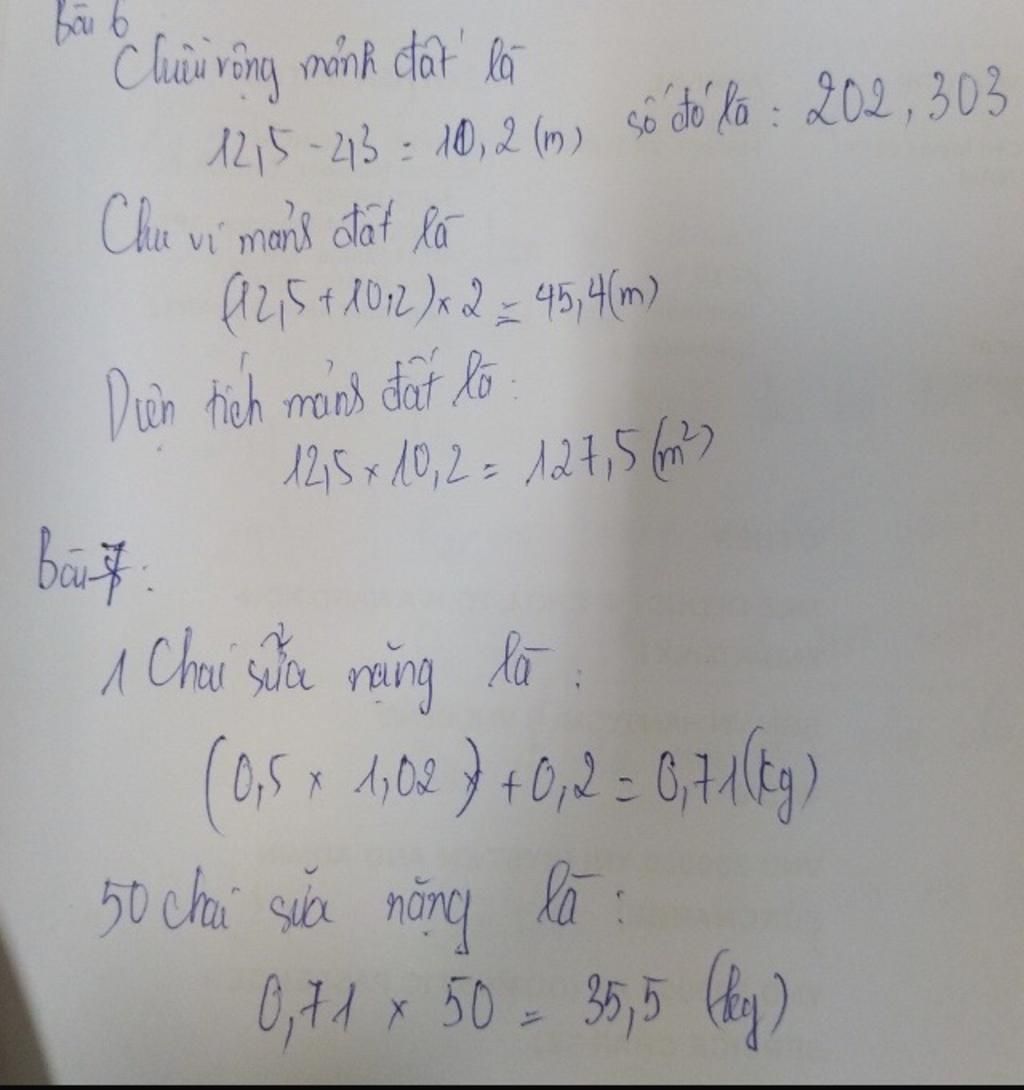 Bài 6
Chiều rộng mảnh đất là
12,5 - 2,3 = 10,2 (m)
số đó là : 202,303
Chu vi mảnh đất là
(12,5 + 10,2) x 2 = 45,4 (m)
Diện tích mảnh đất là :
12,5 x 10,2 = 127,5 (m²)
Bài 7 :
1 Chai sữa nặng là :
(0,5 x 1,02) + 0,2 = 0,71 (kg)
50 chai sữa nặng là :
0,71 x 50 = 35,5 (kg)